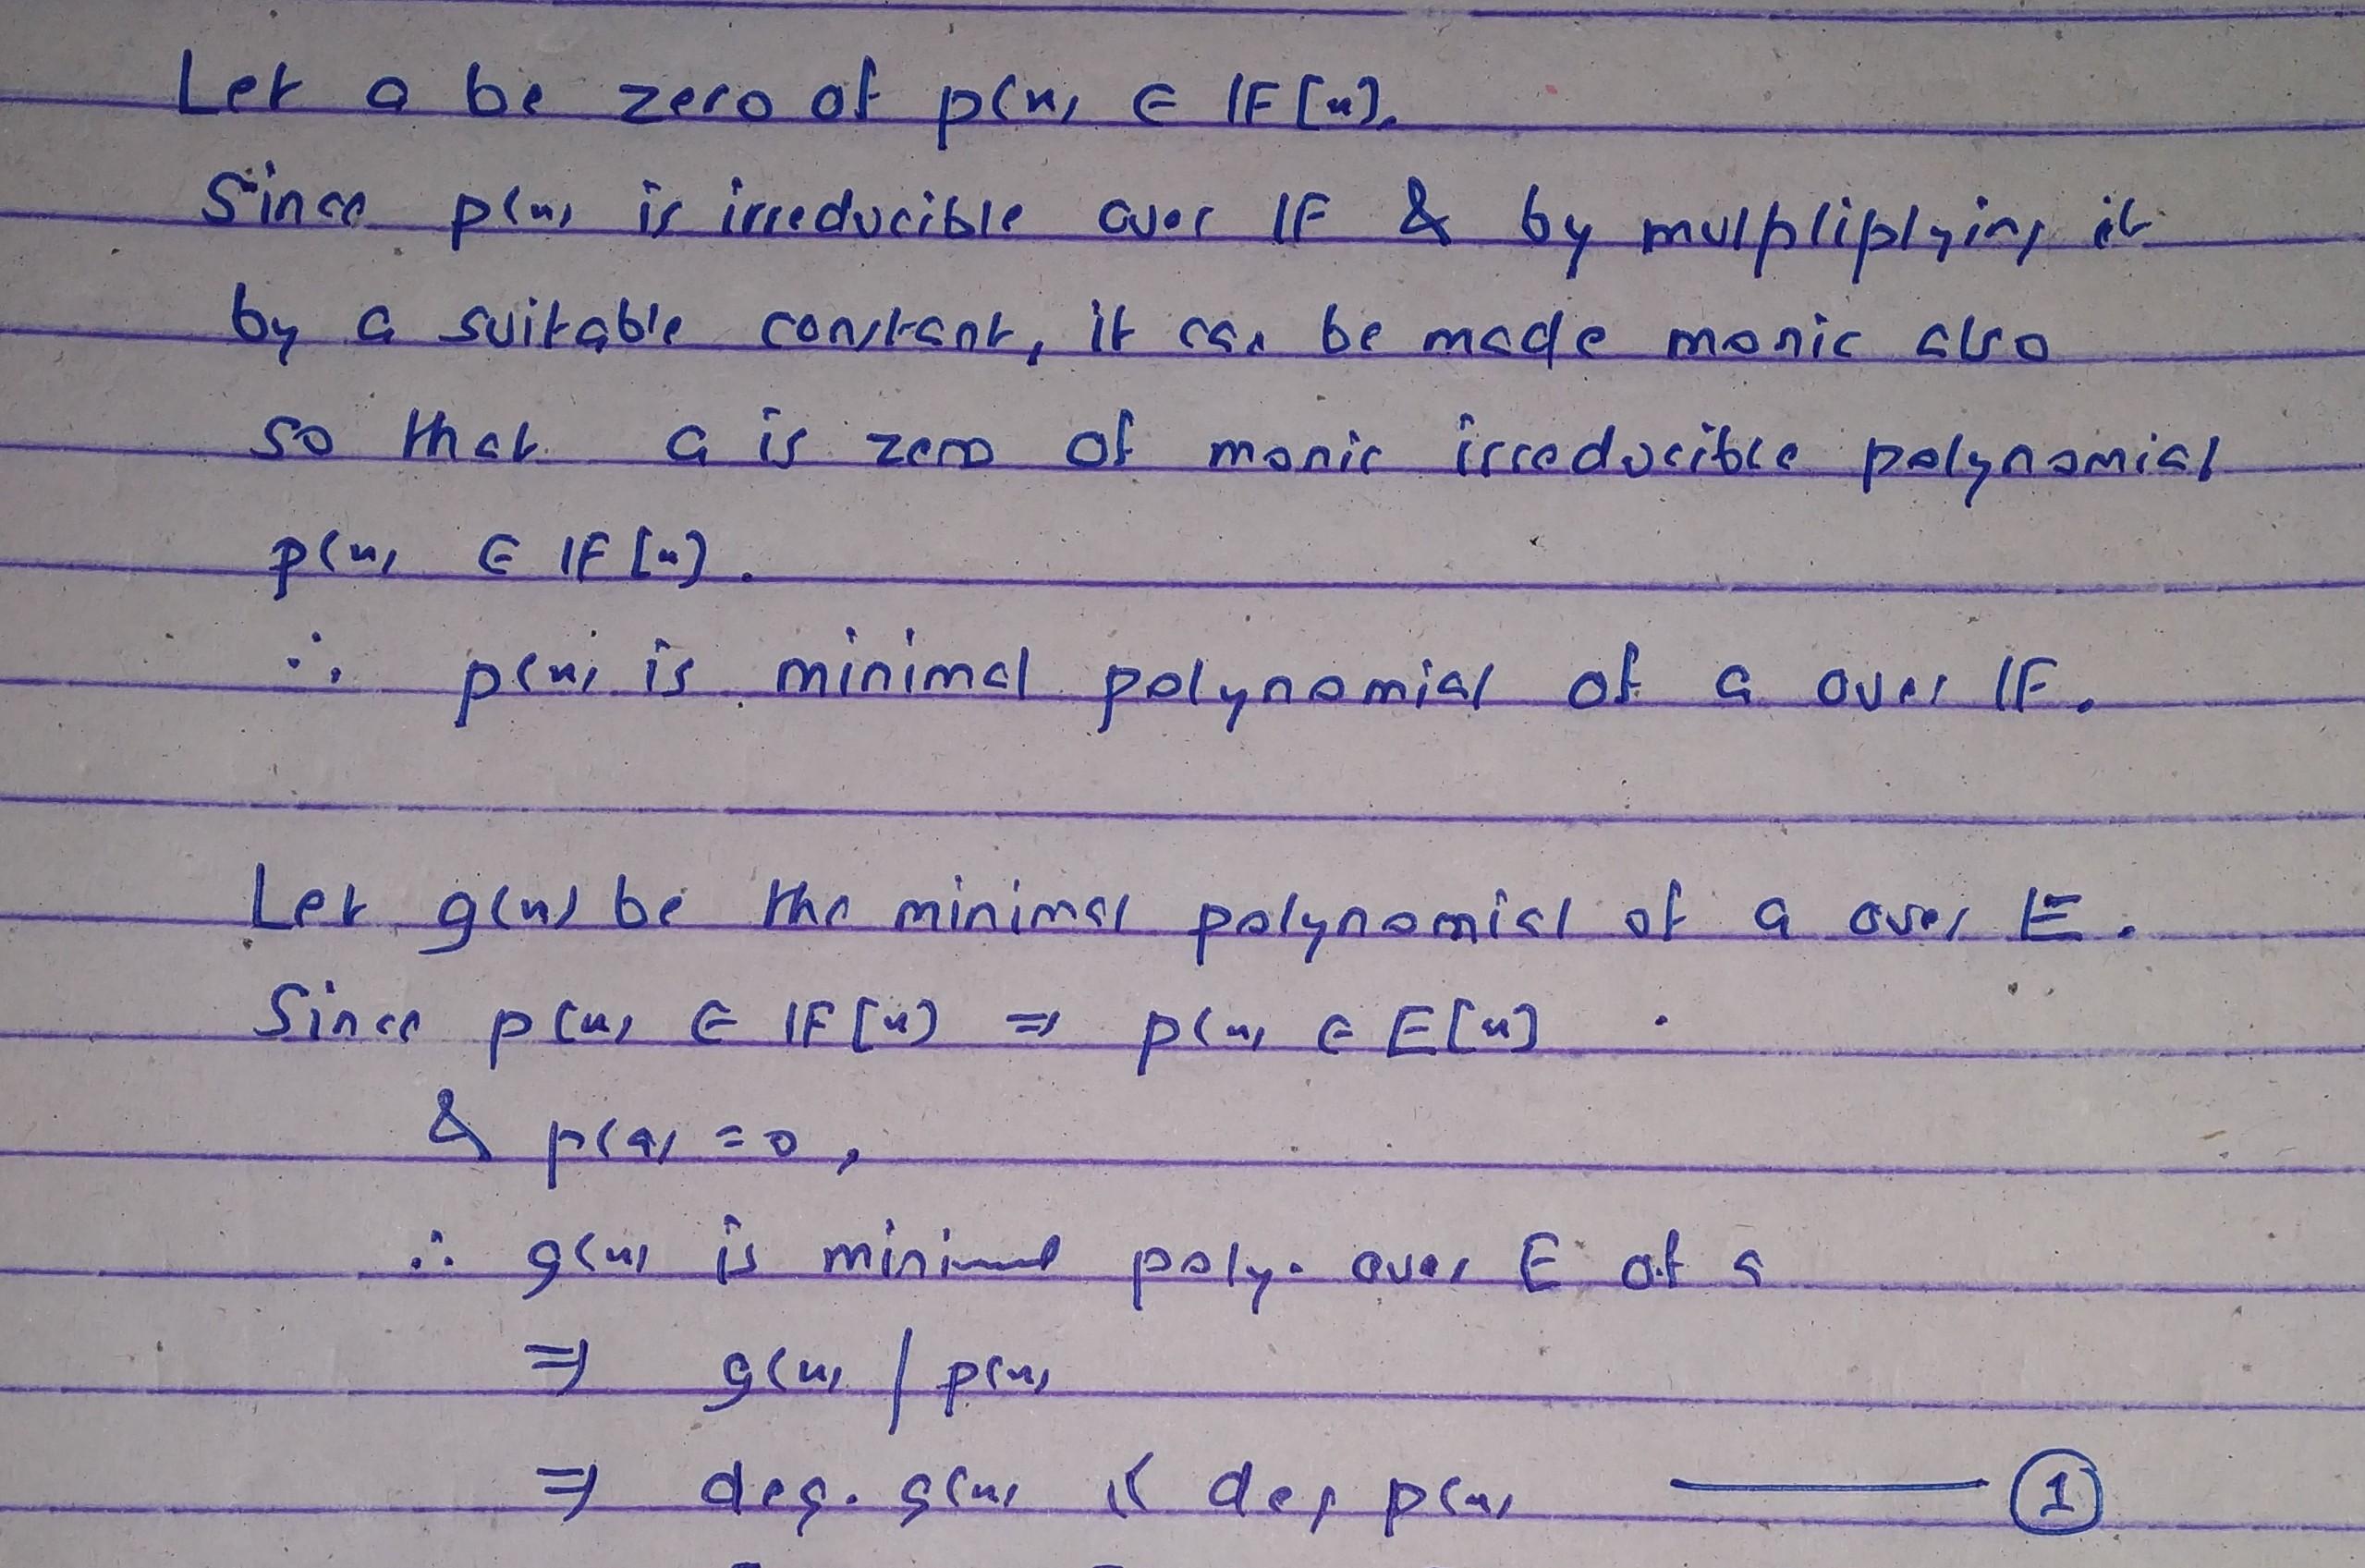 Let a be zero of p(x) ∈ IF[x].
Since p(x) is irreducible over IF & by mulpliplying it
by a suitable constant, it can be made monic also
so that a is zero of monic irreducible polynomial
p(x) ∈ IF[x].
∴ p(x) is minimal polynomial of a over IF.
Let g(x) be the minimal polynomial of a over E.
Since p(x) ∈ IF[x] ⇒ p(x) ∈ E[x]
& p(a) = 0,
∴ g(x) is minimal poly. over E of a
⇒ g(x) / p(x)
⇒ deg. g(x) ≤ deg p(x) —— ①